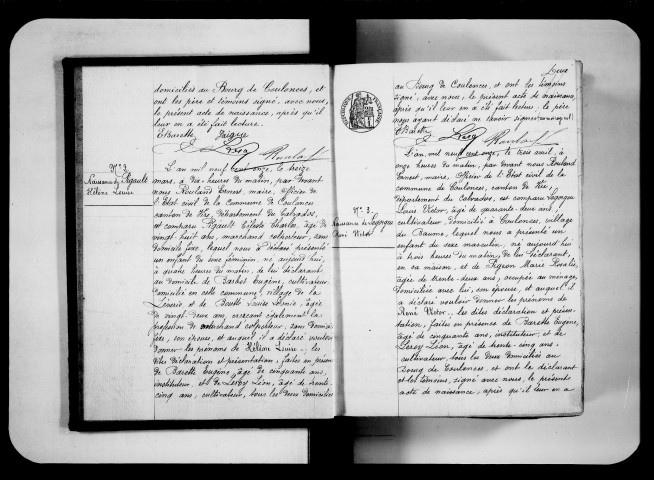 domiciliés au Bourg de Coulonces, et
ont les père et témoins signé, avec nous,
le présent acte de naissance, après qu'il
leur en a été fait lecture.
EBarette
Leroy Roulland
N° 2
Naissance de Rigault
Hélène Louise
L'an mil neuf cent onze, le treize
mars, à dix heures du matin, par devant
nous Roulland Ernest, maire, officier de
l'Etat civil de la Commune de Coulonces
canton de Vire, département du Calvados,
est comparu Rigault Céleste Charles, âgé de
vingt huit ans, marchand colporteur, sans
domicile fixe, lequel nous a déclaré présenté
un enfant du sexe féminin, né aujourd'hui,
à quatre heures du matin, de lui déclarant
au domicile de Barbot Eugène, cultivateur
domicilié en cette commune, village de la
et de Louise Léonie, âgée
de vingt deux ans, exerçant également la
profession de marchand colporteur, sans domicile
fixe, son épouse, et auquel il a déclaré vouloir
donner les prénoms de Hélène Louise. les
dites déclaration et présentation, faites en présence
de Barette Eugène, âgé de cinquante ans,
instituteur, et de Leroy Léon, âgé de trente
cinq ans, cultivateur, tous les deux domiciliés
Deux
au Bourg de Coulonces, et ont les témoins
signé, avec nous, le présent acte de naissance
après qu'il leur en a été fait lecture, le père
nous ayant déclaré ne savoir signer
EBarette
Leroy Roulland
N° 3
Naissance de
René Victor
L'an mil neuf cent onze, le trois avril, à
onze heures du matin, par devant nous Roulland
Ernest, maire, officier de l'Etat civil de la
commune de Coulonces, canton de Vire,
département du Calvados, est comparu
Louis Victor, âgé de quarante deux ans,
cultivateur, domicilié à Coulonces, village
du lequel nous a présenté un
enfant du sexe masculin, né aujourd'hui
à trois heures du matin, de lui déclarant,
en sa maison, et de Pigeon Marie Rosalie
âgée de trente deux ans, occupée au ménage,
domiciliée avec lui, son épouse, et auquel il
a déclaré vouloir donner les prénoms de
René Victor. les dites déclaration et présen-
tation, faites en présence de Barette Eugène,
âgé de cinquante ans, instituteur, et de
Leroy Léon, âgé de trente cinq ans,
cultivateur, tous les deux domiciliés au
Bourg de Coulonces, et ont le déclarant
et les témoins, signé avec nous, le présent
acte de naissance, après qu'il leur en a